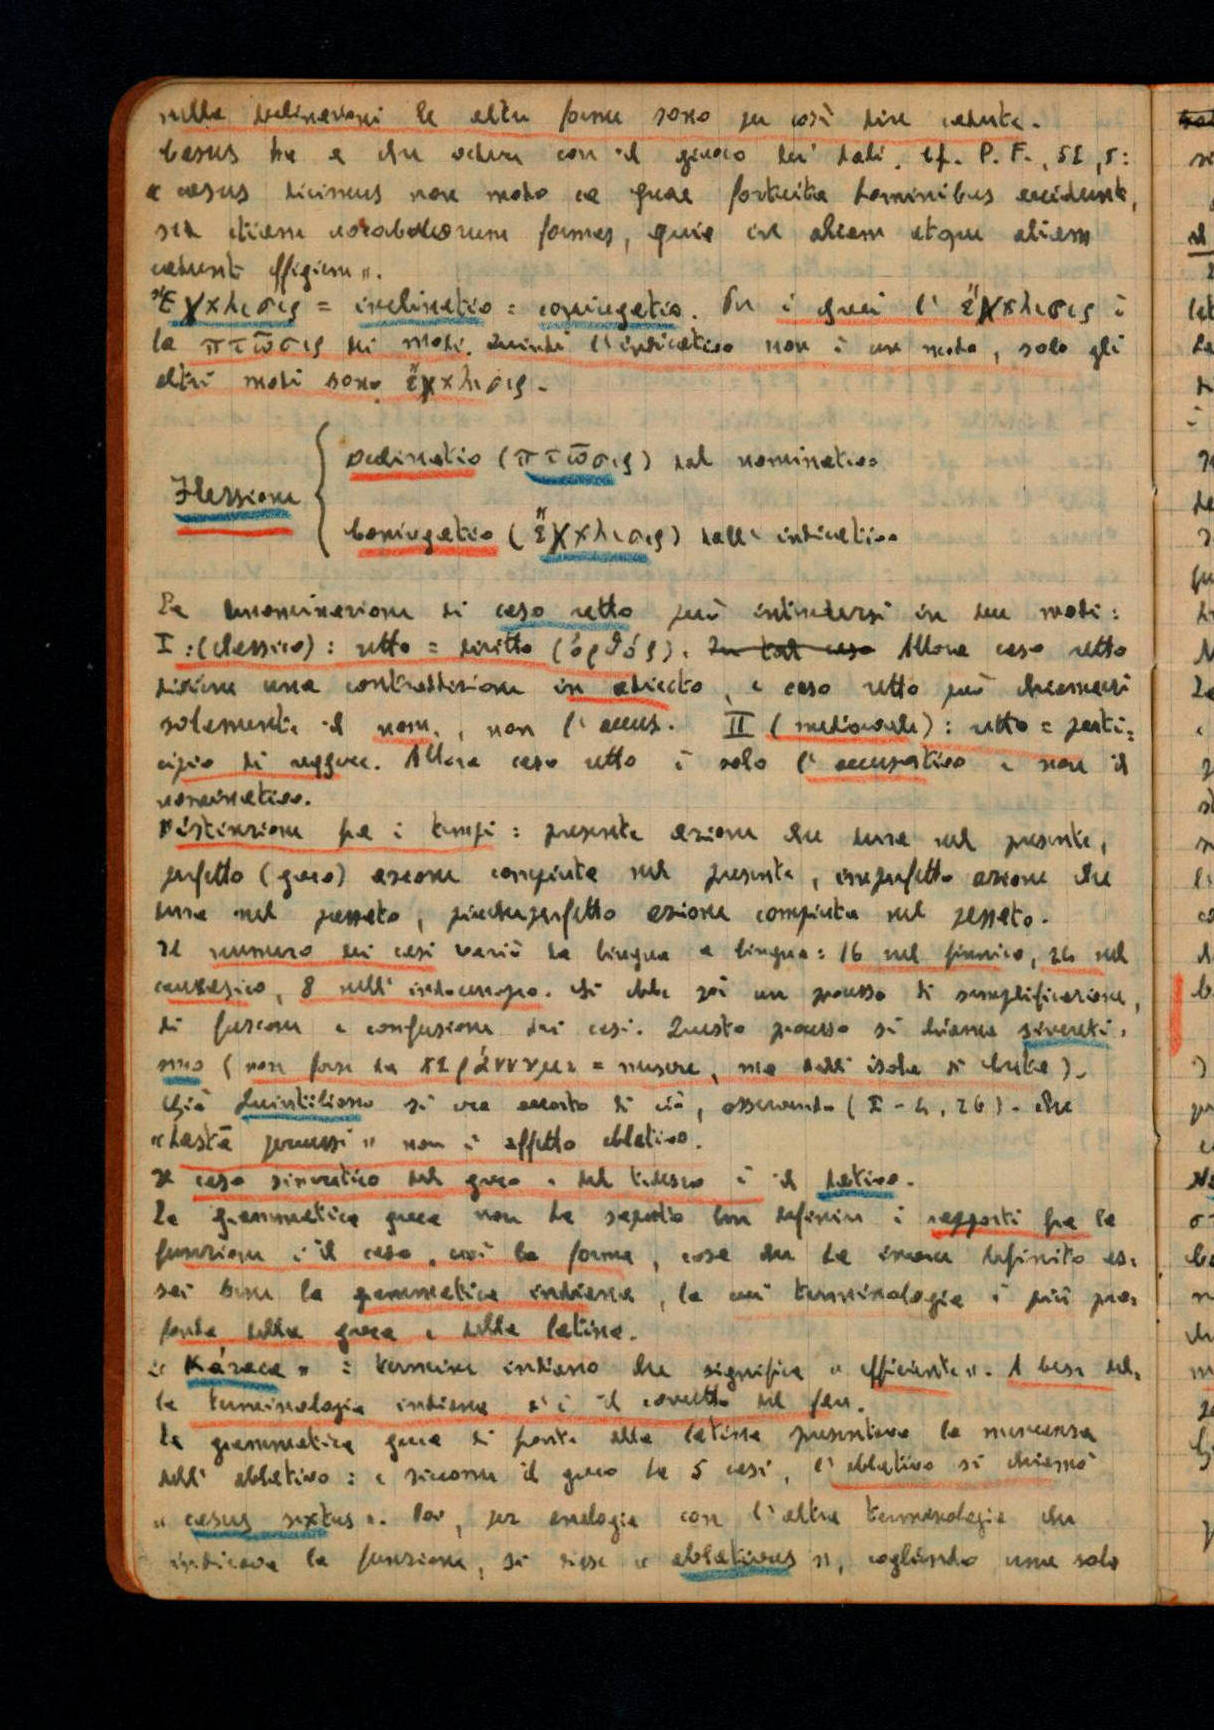 nella declinazioni le altre forme sono per così dire cadute.
Casus ha a che vedere con il giuoco dei dadi. Cf. P. F., 51, 5:
« casus dicimus non modo ea quae fortuita hominibus accidunt,
sed etiam vocabulorum formas, quia in aliam atque aliam
cadunt effigiem ».
Ἔγκλισις = inclinatio = coniugatio. Per i greci l' ἔγκλισις è
la πτῶσις dei modi. Quindi l'indicativo non è un modo, solo gli
altri modi sono ἔγκλισις.
Flessione
declinatio (πτῶσις) dal nominativo
Coniugatio (ἔγκλισις) dall' indicativo
La denominazione di caso retto può intendersi in due modi:
I : (classico) : retto = diritto (ὀρθός). In tal caso Allora caso retto
diviene una contraddizione in adiecto, e caso retto può chiamarsi
solamente il nom., non l' accus. II (medioevale) : retto = parti=
cipio di reggere. Allora caso retto è solo l' accusativo e non il
nominativo.
Distinzione fra i tempi : presente azione che dura nel presente,
perfetto (greco) azione compiuta nel presente, imperfetto azione che
dura nel passato, piucheperfetto azione compiuta nel passato.
Il numero dei casi varia da lingua a lingua : 16 nel finnico, 24 nel
caucasico, 8 nell' indoeuropeo. Si ebbe poi un processo di semplificazione,
di fusione e confusione dei casi. Questo processo si chiama sincreti=
smo (non forse da κεράννυμι = mescere, ma dall' isola di Creta).
Già Quintiliano si era accorto di ciò, osservando (I - 4, 26) che
« hastā percussi » non è affatto ablativo.
Il caso sincretico del greco e del tedesco è il dativo.
La grammatica greca non ha saputo ben definire i rapporti fra la
funzione e il caso, cioè la forma, cosa che ha invece definito as=
sai bene la grammatica indiana, la cui terminologia è più pro=
fonda della greca e della latina.
« Káraca » : termine indiano che significa « efficiente ». A base del=
la terminologia indiana v'è il concetto del fare.
La grammatica greca di fronte alla latina presentava la mancanza
dell' ablativo : e siccome il greco ha 5 casi, l' ablativo si chiamò
« casus sextus ». Poi, per analogia con l' altra terminologia che
indicava la funzione, si disse « ablativus », cogliendo una sola